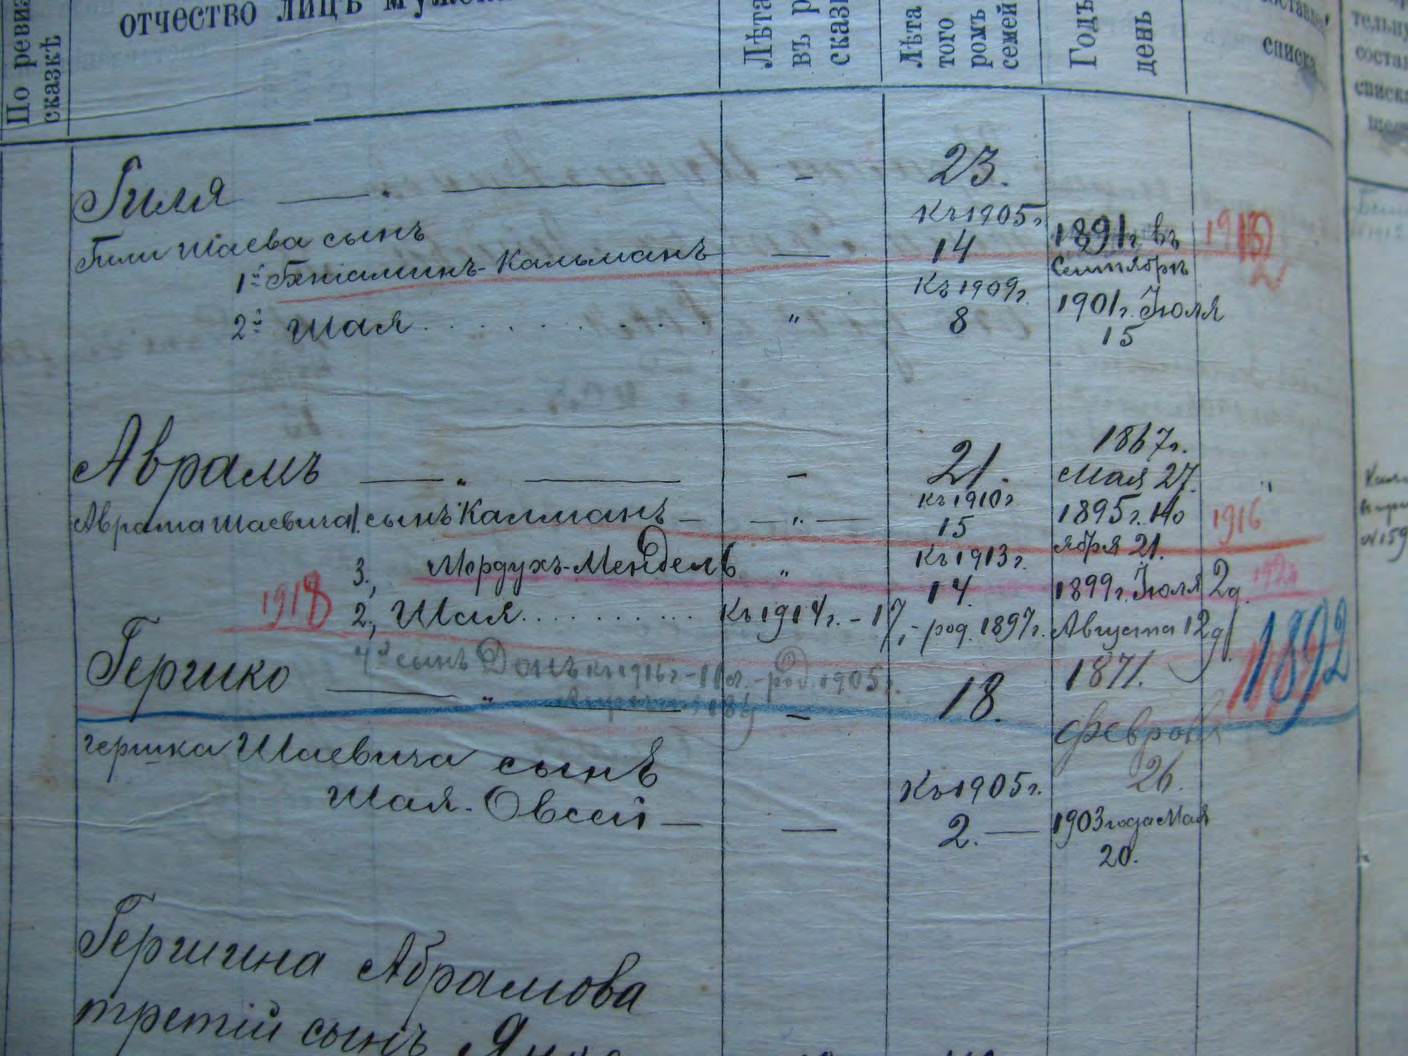 По ревиз
сказкѣ
отчество лицъ мужск
Лѣта
въ р
сказк
Лѣта
того
ромъ
семей
Годъ
день
составлен
списка
тельну
соста
списка
Гиля — " — - 23.
къ 1905 г
Гили Шаева сынъ
1й Беніаминъ-Кальманъ — 14 1891 г. въ Сентябрѣ 1912
къ 1909 г.
2й Шая . . . . . . . . " 8 1901 г. Іюля 15
Аврамъ — " — - 21. 1867 г. Мая 27. "
къ 1910 г
Аврама Шаевича 1. сынъ Калманъ — — " — 15 1895 г. Но ября 21. 1916
къ 1913 г.
3., Мордухъ-Мендель " 14. 1899 г. Іюля 2 д.
1918 2., Шая . . . . . . . . . . къ 1914 г. - 17, - род. 1897 г. Августа 12 д
4й сынъ къ 1916 г. - 11 л. - род. 1905 г.
Гершко — " — - 18. 1871. Февраля 26. 1892
Гершка Шаевича сынъ
къ 1905 г.
Шая-Овсей — — 2. — 1903 года Мая 20.
Гершина Абрамова
третій сынъ